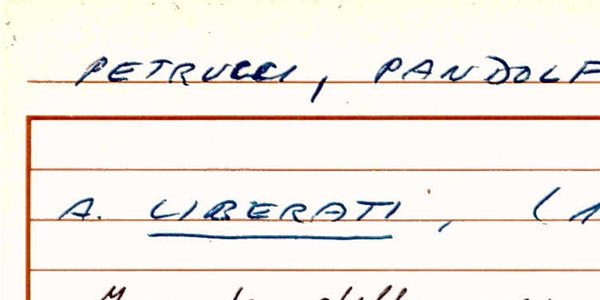 PETRUCCI, PANDOLF
A. LIBERATI, (1